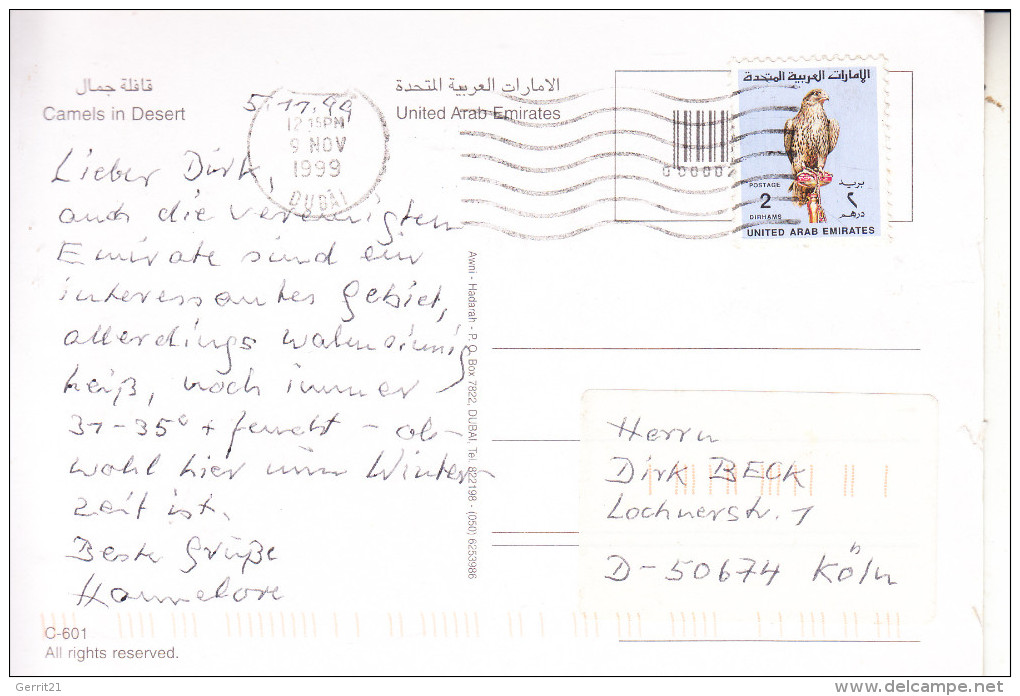 قافلة جمال
Camels in Desert
الامارات العربية المتحدة
United Arab Emirates
5.11.99
12 15PM
9 NOV
1999
DUBAI
000002
الامارات العربية المتحدة
POSTAGE
2
DIRHAMS
بريد
٢
درهم
UNITED ARAB EMIRATES
Lieber Dirk,
auch die Vereinigten
Emirate sind ein
interessantes Gebiet,
allerdings wahnsinnig
heiß, noch immer
31-35° + feucht - ob-
wohl hier nun Winter-
zeit ist.
Beste Grüße
Hannelore
Awni - Hadarah - P. O. Box 7822, DUBAI, Tel. 822198 - (050) 6253986
Herrn
Dirk BECK
Lochnerstr. 1
D-50674 Köln
C-601
All rights reserved.
Gerrit21
delcampe.net